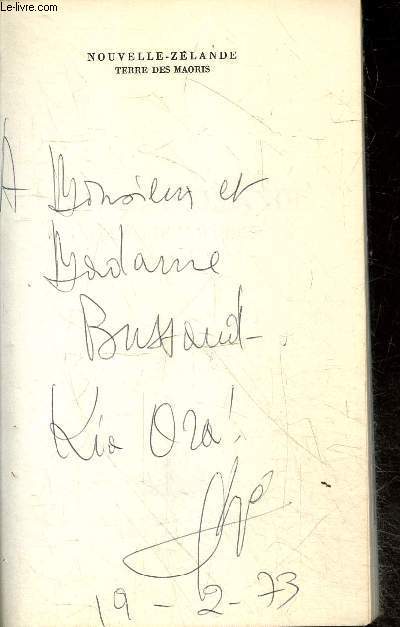 Le-livre.com
NOUVELLE-ZÉLANDE
TERRE DES MAORIS
A Monsieur et
Madame
Kia Ora!
19-2-73